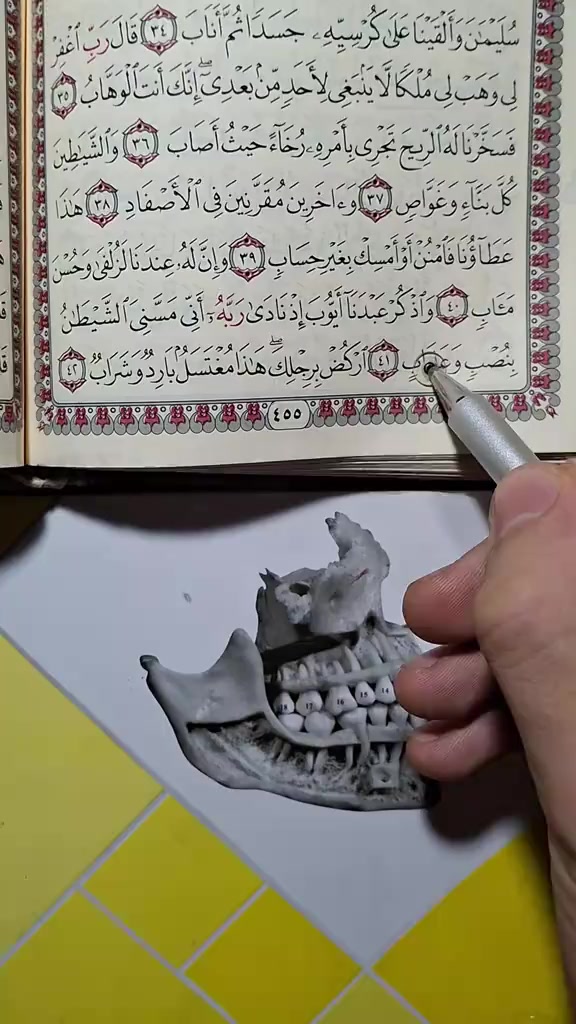 سُلَيْمَٰنَ وَأَلْقَيْنَا عَلَىٰ كُرْسِيِّهِۦ جَسَدًا ثُمَّ أَنَابَ ٣٤ قَالَ رَبِّ ٱغْفِرْ
لِى وَهَبْ لِى مُلْكًا لَّا يَنۢبَغِى لِأَحَدٍ مِّنۢ بَعْدِىٓ ۖ إِنَّكَ أَنتَ ٱلْوَهَّابُ ٣٥
فَسَخَّرْنَا لَهُ ٱلرِّيحَ تَجْرِى بِأَمْرِهِۦ رُخَآءً حَيْثُ أَصَابَ ٣٦ وَٱلشَّيَٰطِينَ
كُلَّ بَنَّآءٍ وَغَوَّاصٍ ٣٧ وَءَاخَرِينَ مُقَرَّنِينَ فِى ٱلْأَصْفَادِ ٣٨ هَٰذَا
عَطَآؤُنَا فَٱمْنُنْ أَوْ أَمْسِكْ بِغَيْرِ حِسَابٍ ٣٩ وَإِنَّ لَهُۥ عِندَنَا لَزُلْفَىٰ وَحُسْنَ
مَـَٔابٍ ٤٠ وَٱذْكُرْ عَبْدَنَآ أَيُّوبَ إِذْ نَادَىٰ رَبَّهُۥٓ أَنِّى مَسَّنِىَ ٱلشَّيْطَٰنُ
بِنُصْبٍ ٤١ ٱرْكُضْ بِرِجْلِكَ ۖ هَٰذَا مُغْتَسَلٌۢ بَارِدٌ وَشَرَابٌ ٤٢
٤٥٥
18 17 16 15 14